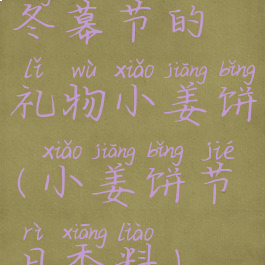 冬幕节的
lǐ wù xiǎo jiāng bǐng
礼物小姜饼
xiǎo jiāng bǐng jié
(小姜饼节
rì xiāng liào
日香料)